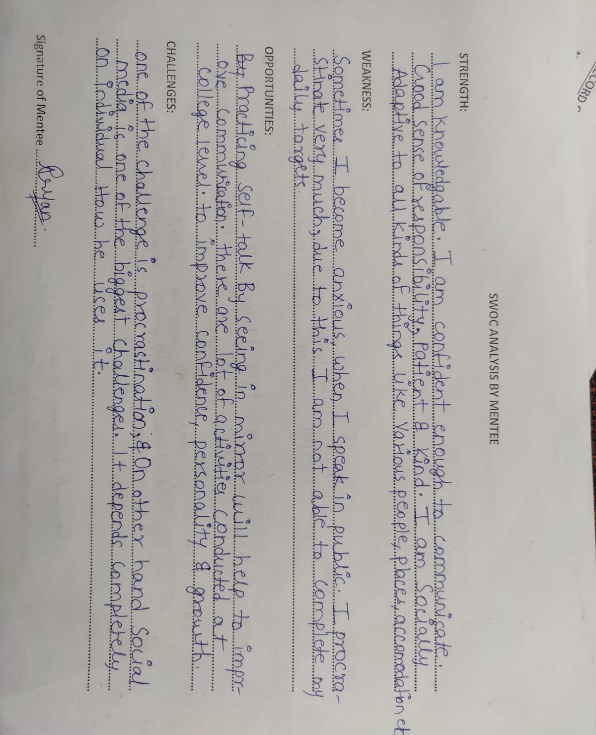 SWOC ANALYSIS BY MENTEE
STRENGTH:
I am knowledgable. I am confident enough to communicate.
Good sense of responsibility, patient & kind. I am Socially
Adaptive to all kinds of things like Various people, places, accomodation etc
WEAKNESS:
Sometimes I become anxious, when I speak in public. I procra-
stinate very much, due to this I am not able to complete my
daily targets.
OPPORTUNITIES:
By Practicing self-talk By seeing in mirror will help to impr-
ove communication. there are lot of activities conducted at
college level. to improve confidence, personality & growth.
CHALLENGES:
one of the challenge is procrastination, & On other hand Social
media is one of the biggest challenges. It depends completely
on individual How he uses it.
Signature of Mentee